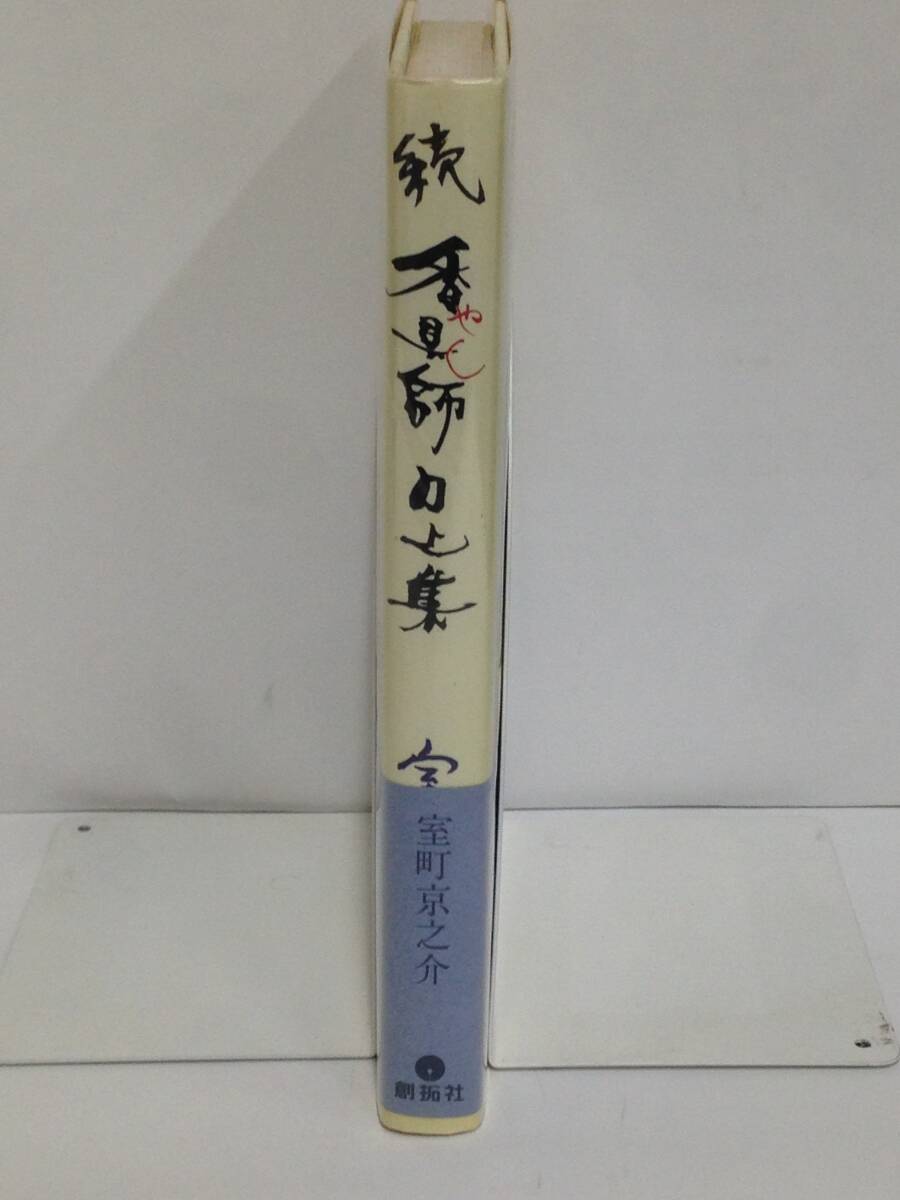 続 香具師口上集
やし
室
室町京之介
創拓社